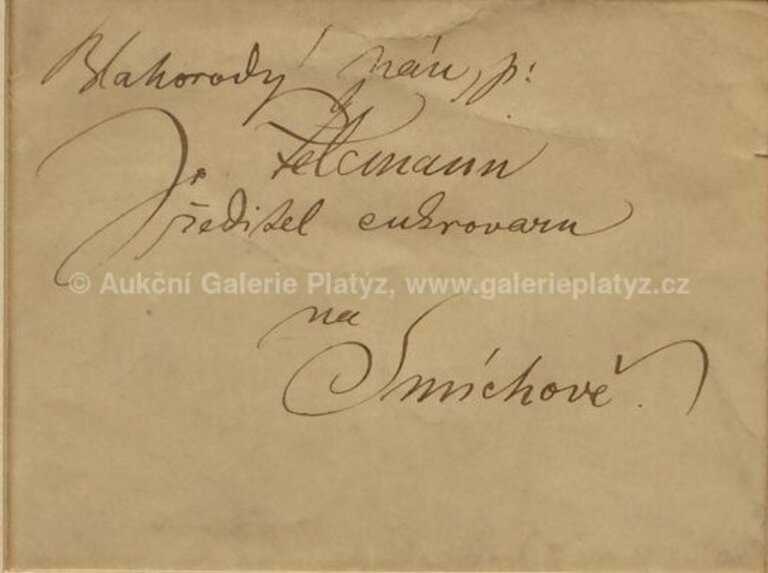 Blahorodý pán, p:
J. Felcmann
ředitel cukrovaru
© Aukční Galerie Platýz, www.galerieplatyz.cz
na
Smíchově.